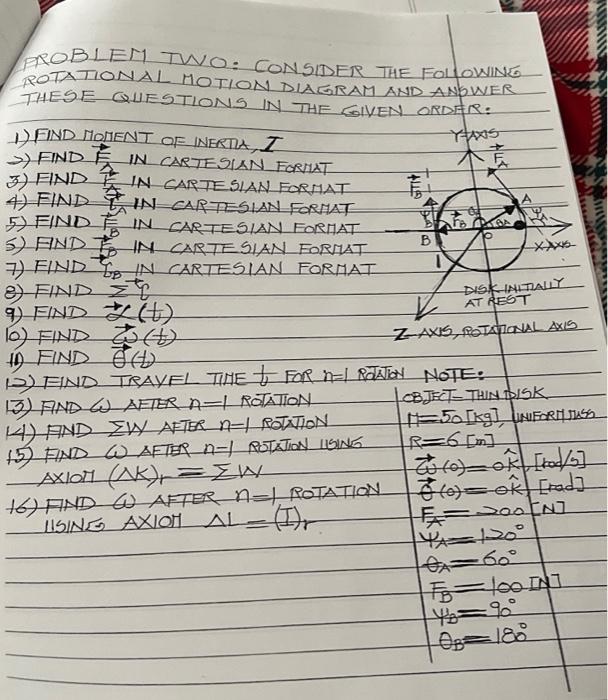 PROBLEM TWO: CONSIDER THE FOLLOWING
ROTATIONAL MOTION DIAGRAM AND ANSWER
THESE QUESTIONS IN THE GIVEN ORDER:
1) FIND MOMENT OF INERTIA, I
2) FIND F IN CARTESIAN FORMAT
3) FIND r IN CARTESIAN FORMAT
4) FIND τA IN CARTESIAN FORMAT
5) FIND F IN CARTESIAN FORMAT
6) FIND rB IN CARTESIAN FORMAT
7) FIND τB IN CARTESIAN FORMAT
8) FIND Στ
9) FIND α(t)
10) FIND ω(t)
11) FIND θ(t)
12) FIND TRAVEL TIME t FOR n=1 ROTATION
13) FIND ω AFTER n=1 ROTATION
14) FIND ΣW AFTER n=1 ROTATION
15) FIND ω AFTER n=1 ROTATION USING
AXIOM (ΔK)r = ΣW
16) FIND ω AFTER n=1 ROTATION
USING AXIOM ΔL=(I)r
Y-AXIS
FA
FB
A
ψB
rB
θA
ψA
B
O
X-AXIS
DISK INITIALLY
AT REST
Z-AXIS, ROTATIONAL AXIS
NOTE:
OBJECT=THIN DISK
M=50 [kg], UNIFORM MASS
R=6 [m]
ω(0)=0k̂, [rad/s]
θ(0)=0k̂, [rad]
FA=200 [N]
ψA=120°
θA=60°
FB=100 [N]
ψB=90°
θB=180°